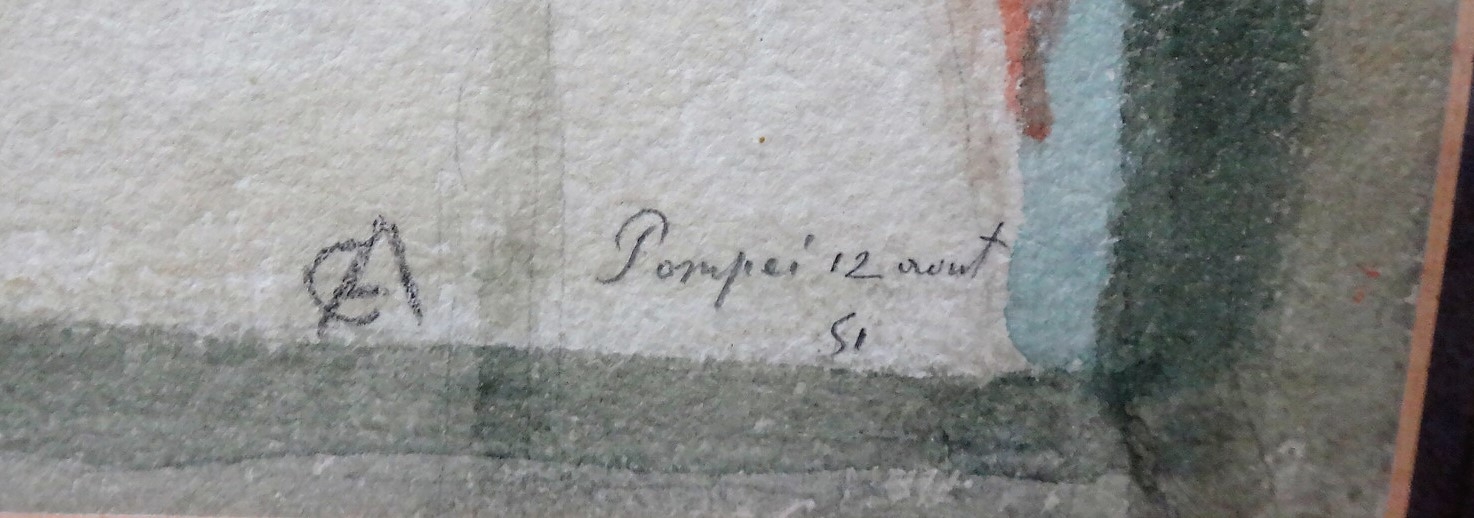 Pompei 12 aout
51